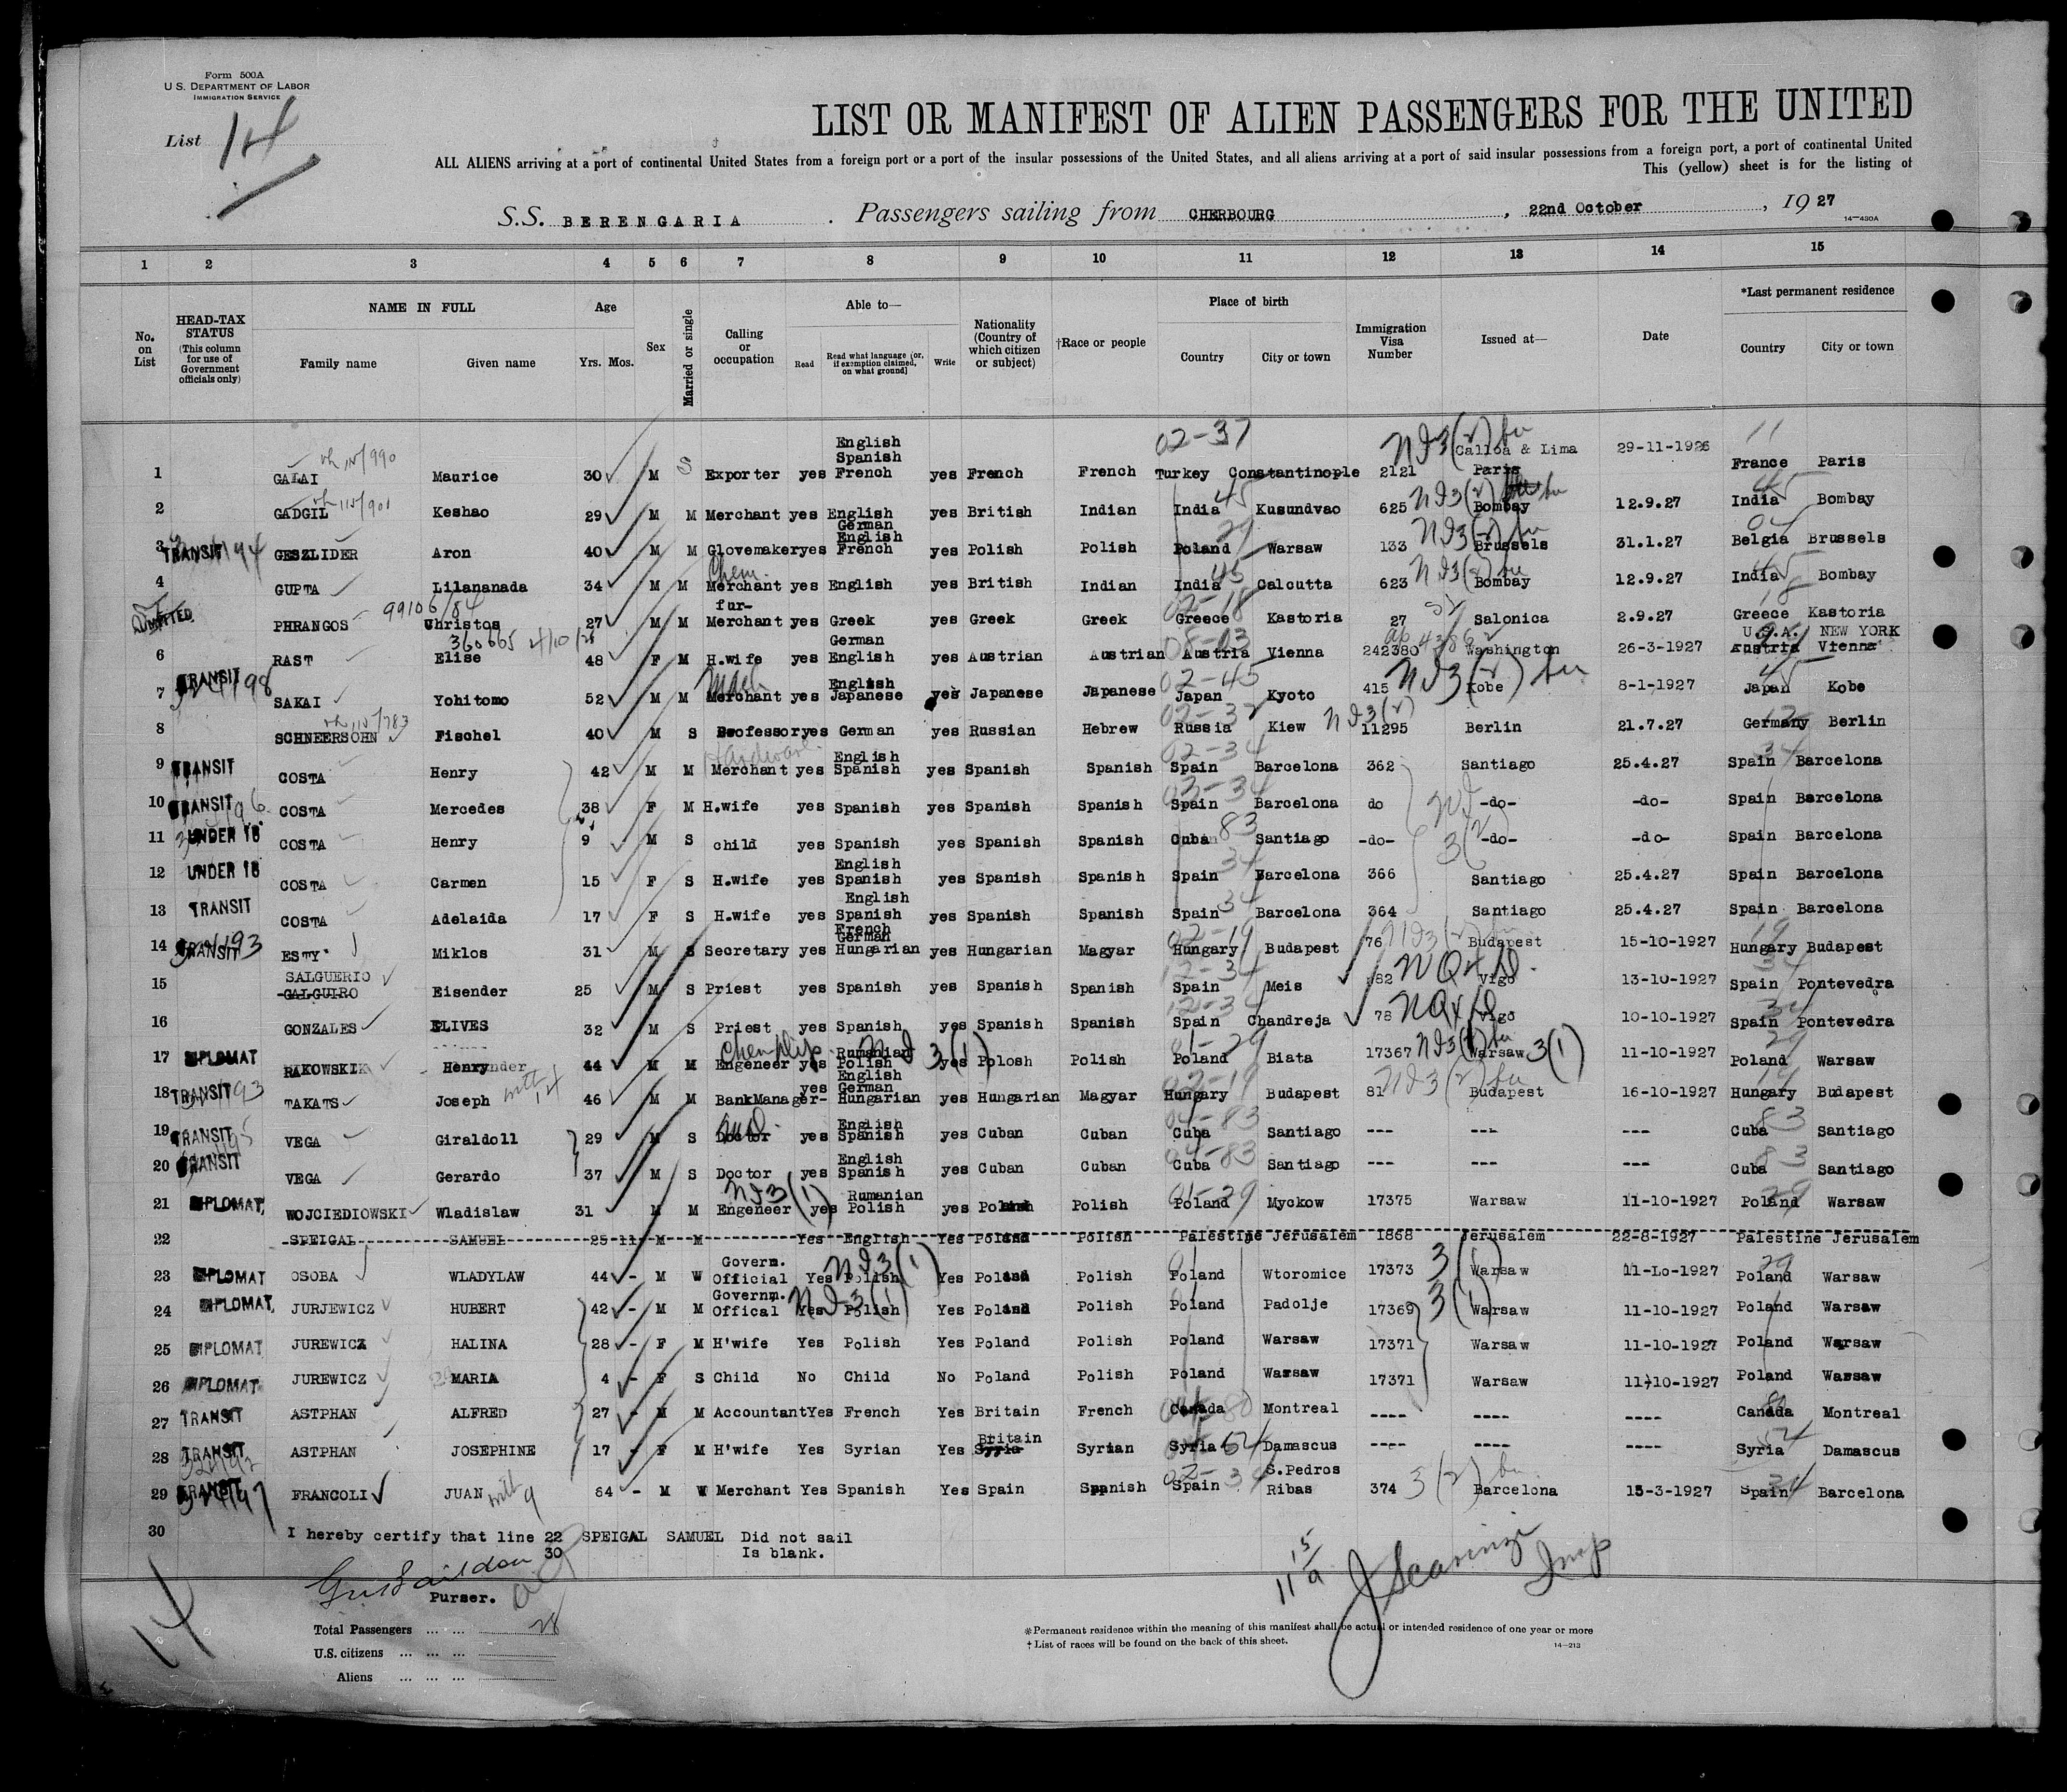 Form 500A
U.S. DEPARTMENT OF LABOR
IMMIGRATION SERVICE
List 14
LIST OR MANIFEST OF ALIEN PASSENGERS FOR THE UNITED
ALL ALIENS arriving at a port of continental United States from a foreign port or a port of the insular possessions of the United States, and all aliens arriving at a port of said insular possessions from a foreign port, a port of continental United
This (yellow) sheet is for the listing of
S.S. BERENGARIA . Passengers sailing from CHERBOURG , 22nd October , 19 27
14—430A
1 2 3 4 5 6 7 8 9 10 11 12 13 14 15
No. on List
HEAD-TAX STATUS (This column for use of Government officials only)
NAME IN FULL
Family name Given name
Age
Yrs. Mos.
Sex
Married or single
Calling or occupation
Able to—
Read Read what language (or, if exemption claimed, on what ground) Write
Nationality (Country of which citizen or subject)
†Race or people
Place of birth
Country City or town
Immigration Visa Number
Issued at—
Date
*Last permanent residence
Country City or town
1 GALAI Maurice 30 M S Exporter yes English Spanish French yes French French Turkey Constantinople 2121 Calloa & Lima Paris 29-11-1926 France Paris
2 GADGIL Keshao 29 M M Merchant yes English yes British Indian India Kusundvao 625 Bombay 12.9.27 India Bombay
3 TRANSIT GESZLIDER Aron 40 M M Glovemaker yes German English French yes Polish Polish Poland Warsaw 133 Brussels 31.1.27 Belgia Brussels
4 GUPTA Lilananada 34 M M Chem. Merchant yes English yes British Indian India Calcutta 623 Bombay 12.9.27 India Bombay
PHRANGOS 99106/84 Christos 27 M M fur- Merchant yes Greek yes Greek Greek Greece Kastoria 27 Salonica 2.9.27 Greece Kastoria
6 RAST Elise 48 F M H.wife yes German English yes Austrian Austrian Austria Vienna 242380 Washington 26-3-1927 U.S.A. NEW YORK Austria Vienna
7 TRANSIT SAKAI Yohitomo 52 M M Merchant yes English Japanese yes Japanese Japanese Japan Kyoto 415 Kobe 8-1-1927 Japan Kobe
8 SCHNEERSOHN Fischel 40 M S Professor yes German yes Russian Hebrew Russia Kiew 11295 Berlin 21.7.27 Germany Berlin
9 TRANSIT COSTA Henry 42 M M Hardware Merchant yes English Spanish yes Spanish Spanish Spain Barcelona 362 Santiago 25.4.27 Spain Barcelona
10 TRANSIT COSTA Mercedes 38 F M H.wife yes Spanish yes Spanish Spanish Spain Barcelona do -do- -do- Spain Barcelona
11 UNDER 16 COSTA Henry 9 M S child yes Spanish yes Spanish Spanish Cuba Santiago -do- -do- -do- Spain Barcelona
12 UNDER 16 COSTA Carmen 15 F S H.wife yes English Spanish yes Spanish Spanish Spain Barcelona 366 Santiago 25.4.27 Spain Barcelona
13 TRANSIT COSTA Adelaida 17 F S H.wife yes English Spanish yes Spanish Spanish Spain Barcelona 364 Santiago 25.4.27 Spain Barcelona
14 TRANSIT ESTY Miklos 31 M S Secretary yes French German Hungarian yes Hungarian Magyar Hungary Budapest 76 Budapest 15-10-1927 Hungary Budapest
15 SALGUERIO GALGUIRO Eisender 25 M S Priest yes Spanish yes Spanish Spanish Spain Meis Vigo 13-10-1927 Spain Pontevedra
16 GONZALES ELIVES 32 M S Priest yes Spanish yes Spanish Spanish Spain Chandreja 78 Vigo 10-10-1927 Spain Pontevedra
17 DIPLOMAT RAKOWSKI Henry 44 M M Engeneer yes Rumanian Polish yes Polosh Polish Poland Biata 17367 Warsaw 3(1) 11-10-1927 Poland Warsaw
18 TRANSIT TAKATS Joseph 46 M M BankManager- yes English German Hungarian yes Hungarian Magyar Hungary Budapest 81 Budapest 16-10-1927 Hungary Budapest
19 TRANSIT VEGA Giraldoll 29 M S Doctor yes English Spanish yes Cuban Cuban Cuba Santiago --- --- --- Cuba Santiago
20 TRANSIT VEGA Gerardo 37 M S Doctor yes English Spanish yes Cuban Cuban Cuba Santiago --- --- --- Cuba Santiago
21 DIPLOMAT WOJCIEDIOWSKI Wladislaw 31 M M Engeneer yes Rumanian Polish yes Poland Polish Poland Myckow 17375 Warsaw 11-10-1927 Poland Warsaw
22 SPEIGAL SAMUEL 25 11 M M Yes English Yes Poland Polish Palestine Jerusalem 1868 Jerusalem 22-8-1927 Palestine Jerusalem
23 DIPLOMAT OSOBA WLADYLAW 44 - M W Govern. Official Yes Polish Yes Poland Polish Poland Wtoromice 17373 Warsaw 11-Lo-1927 Poland Warsaw
24 DIPLOMAT JURJEWICZ HUBERT 42 - M M Governm. Offical Yes Polish Yes Poland Polish Poland Padolje 17369 Warsaw 11-10-1927 Poland Warsaw
25 DIPLOMAT JUREWICZ HALINA 28 - F M H'wife Yes Polish Yes Poland Polish Poland Warsaw 17371 Warsaw 11-10-1927 Poland Warsaw
26 DIPLOMAT JUREWICZ MARIA 4 - F S Child No Child No Poland Polish Poland Warsaw 17371 Warsaw 11-10-1927 Poland Warsaw
27 TRANSIT ASTPHAN ALFRED 27 - M M Accountant Yes French Yes Britain French Canada Montreal ---- ---- ---- Canada Montreal
28 TRANSIT ASTPHAN JOSEPHINE 17 - F M H'wife Yes Syrian Yes Britain Syria Syrian Syria Damascus ---- ---- ---- Syria Damascus
29 TRANSIT FRANCOLI JUAN 64 - M W Merchant Yes Spanish Yes Spain Spanish Spain S.Pedros Ribas 374 Barcelona 15-3-1927 Spain Barcelona
30 I hereby certify that line 22 SPEIGAL SAMUEL Did not sail
30 Is blank.
Purser.
Total Passengers ... ... 28
U.S. citizens ... ... ...
Aliens ... ... ...
14
*Permanent residence within the meaning of this manifest shall be actual or intended residence of one year or more
† List of races will be found on the back of this sheet.
14—213